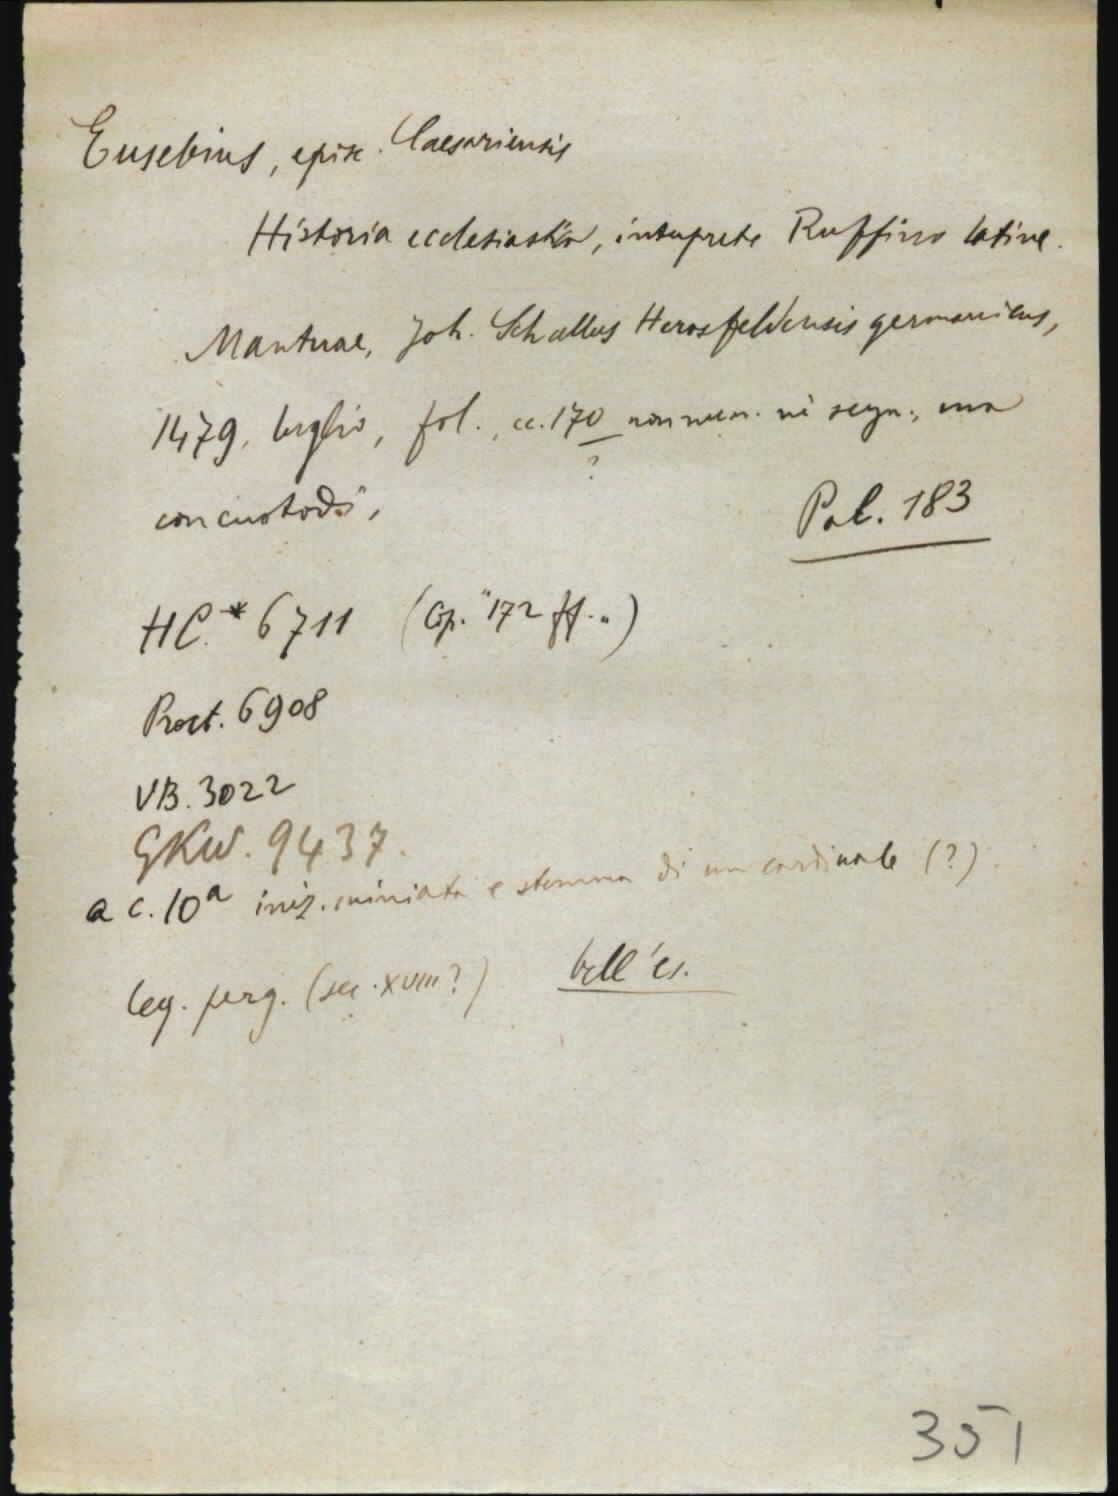 Eusebius, episc. Caesariensis
Historia ecclesiastica, interprete Ruffino latine.
Mantuae, Joh. Schallus Herosfeldensis germanicus,
1479, luglio, fol., cc. 170 non num. nè segn., ma
?
con custodi,
Pal. 183
HC.* 6711 (Cop. "172 ff.")
Proct. 6908
VB. 3022
GKW. 9437.
a c. 10a iniz. miniata e stemma di un cardinale (?).
leg. perg. (sec. XVIII?) bell'es.
351